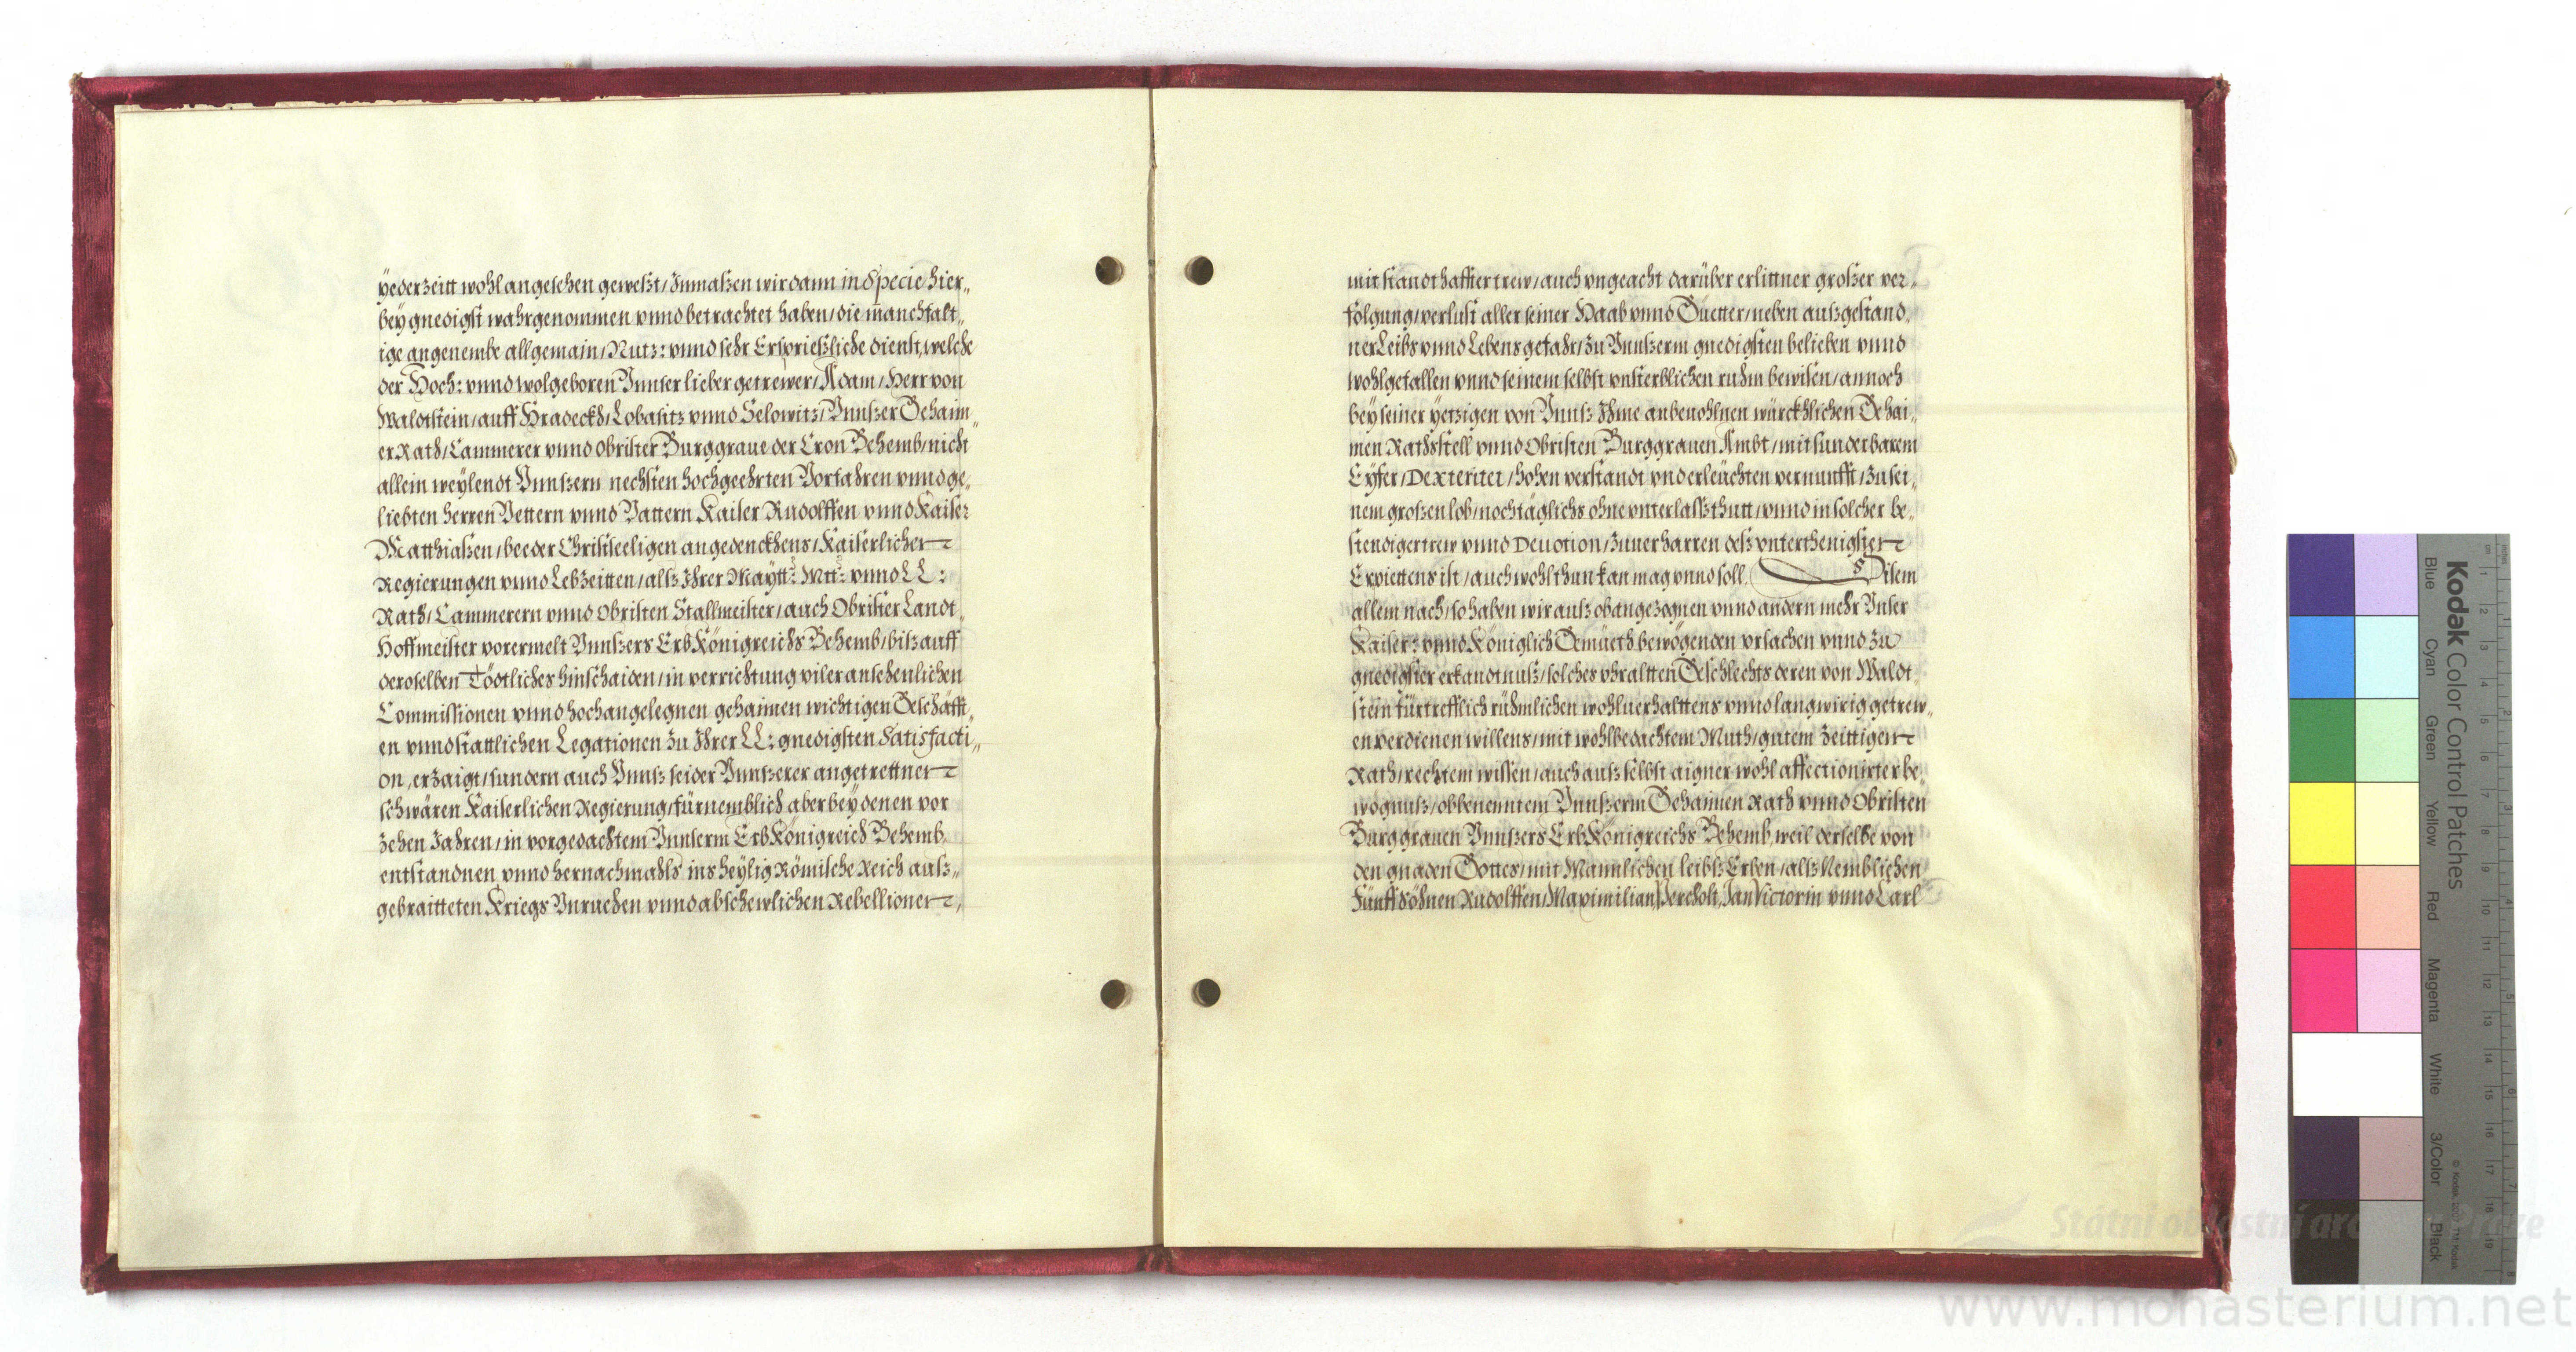 yederzeitt wohl angesehen geweßt / Inmaßen wir dann in Specie hier„
bey gnedigst wahrgenommen vnnd betrachtet haben / die manchfalt„
ige angenembe allgemain / Nutz: vnnd sehr Ersprießliche dienst, welche
der Hoch: vnnd wolgeboren Vnnser lieber getrewer / Adam / Herr von
Waldtstein / auff Hradeckh / Lobasitz vnnd Selowitz / Vnnßer Gehaim„
er Rath / Cammerer vnnd Obrister Burggraue der Cron Behemb / nicht
allein weylendt Vnnßern nechsten hochgeehrten Vorfahren vnnd ge„
liebten herren Vettern vnnd Vattern Kaiser Rudolffen vnnd Kaiser
Matthiaßen / beeder Christseeligen angedenckhens / Kaiserlicher
Regierungen vnnd Lebzeitten / alß Ihrer Maytt: Mtt: vnnd LL:
Rath / Cammerern vnnd Obristen Stallmeister / auch Obrister Landt„
Hoffmeister vorermelt Vnnßers ErbKönigreichs Behemb / biß auff
deroselben Tödtliches hinschaiden / in verrichtung viler ansehenlichen
Commissionen vnnd hochangelegnen gehaimen wichtigen Geschäffti„
en vnnd stattlichen Legationen zu Ihrer LL: gnedigsten Satisfacti„
on, erzaigt / sundern auch Vnnß seider Vnnßerer angetrettner
schwären Kaiserlichen Regierung / fürnemblich aber bey denen vor
zehen Jahren / in vorgedachtem Vnnserm ErbKönigreich Behemb„
entstandnen vnnd hernachmahls ins heylig Römische Reich auß„
gebraitteten Kriegs Vnruehen vnnd abschewlichen Rebellionen,
mit standthaffter trew / auch vngeacht darüber erlittner großer ver„
folgung / verlust aller seiner Haab vnnd Güetter / neben außgestand„
ner Leibs vnnd Lebens gefahr / zu Vnnßerm gnedigsten belieben vnnd
wohlgefallen vnnd seinem selbst vnsterblichen ruhm bewisen / annoch
bey seiner yetzigen von Vnnß Ihme anbeuohlnen würckhlichen Gehai„
men Rathsstell vnnd Obristen Burggrauen Ambt / mit sunderbarem
Eyfer / Dexteritet / hohen verstandt vnd erleüchten vernunfft / zu sei„
nem großen lob / noch täglichs ohne vnterlaß thutt / vnnd in solcher be„
stendiger trew vnnd Deuotion / zuuerharren deß vnterthenigsten
Erpiettens ist / auch wohl thun kan mag vnnd soll. Disem
allem nach / so haben wir auß obangezognen vnnd andern mehr Vnser
Kaiser: vnnd Königlich Gemüeth bewögenden vrsachen vnnd zu
gnedigster erkandtnuß / solches vhraltten Geschlechts deren von Waldt„
stein fürtrefflich rühmlichen wohluerhalttens vnnd langwirig getrew„
en verdienen willens / mit wohlbedachtem Muth / gutem zeittigen
Rath / rechtem wissen / auch auß selbst aigner wohl affectionirter be„
wögnuß / obbenenntem Vnnßerm Gehaimen Rath vnnd Obristen
Burggrauen Vnnßers ErbKönigreichs Behemb, weil derselbe von
den gnaden Gottes / mit Mannlichen leibß Erben / alß Nemblichen
Fünff Söhnen Rudolffen / Maximilian, Bercholt, Jan Victorin vnnd Carl
Kodak Color Control Patches
Blue Cyan Green Yellow Red Magenta White 3/Color Black
Státní oblastní archiv v Praze
www.monasterium.net